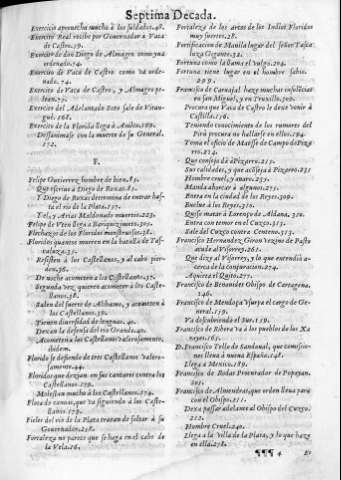 Septima Decada.
Exercicio aprouecha mucho a los soldados.48.
Exercito Real recibe por Gouernador a Vaca
de Castro.59.
Exercito de don Diego de Almagro como yua
ordenado.74.
Exercito de Vaca de Castro como ua orde-
nado. 74.
Exercito de Vaca de Castro, y Almagro pe-
lean.75.
Exercito del Adelantado Soto sale de Vitan-
gue. 168.
Exercito de la Florida llega a Aulco.169.
Dessanimase con la muerte de su General.
172.
F.
Felipe Gutierrez hombre de bien.83.
Que escriue a Diego de Roxas.83.
Y Diego de Roxas determina de entrar has-
ta el rio de la Plata.
Yel, y Arias Maldonado muertos.223.
Felipe de Vten llega a Barquizimeto.205.
Flechazos de los Floridos monstruosos.38.
Floridos quantos mueren en la batalla de Tas-
caluza.33.
Resisten a los Castellanos, y al cabo pier-
den.36.
De noche acometen a los Castellanos.37.
Segunda vez quieren acometer a los Caste-
llanos.38.
Salen del fuerte de Alibamo, y acometen a
los Castellanos.39.
Tienen diuersidad de lenguas.40.
Dexan la defensa del rio Grande.40.
Acometen a los Castellanos valerosamente,
ibidem.
Florido se defiende de tres Castellanos valero-
samente.44.
Floridos que dezian en sus cantares contra los
Castellanos.
Molestan mucho a los Castellanos.174.
Flota de canoas, que va siguiendo a los Caste-
llanos.173.
Fieles del rio de la Plata tratan de soltar a su
Gouernador.258.
Fortaleza no parece que se haga en el cabo de
la Vela.16.
Fortaleza de los arcos de los Indios Floridos
muy fuertes.28.
Fortificacion de Manila lugar del señor Tasca
luza Gigante.32.
Fortuna como la llama el vulgo.204.
Fortuna tiene lugar en el hombre sabio.
209.
Francisco de Caruajal haze muchas insolēcias
en san Miguel, y en Truxillo.
Procura que Vaca de Castro le dexe venir a
Castilla.176.
Teniendo conocimiento de los rumores del
Piru procura no hallarse en ellos.194.
Toma el oficio de Maesse de Campo de Piça-
rro.214.
Que conseja dà a Piçarro.215.
Sus calidades, y que aconseja a Piçarro.231
Hombre cruel, y auaro.253.
Manda ahorcar a algunos.255.
Entra en la ciudad de los Reyes.300.
Buelue a los Reyes.310.
Quiso matar a Lorenço de Aldana.310.
Entra con temor en el Cuzco.313.
Sale del Cuzco contra Centeno.313.
Francisco Hernandez Giron vezino de Pasto
ayuda al Visorrey.263.
Que dize al Visorrey, y lo que entendia a-
cerca de la conjuracion.274.
Aquieta el Quito.275.
Francisco de Benauides Obispo de Cartagena,
246.
Francisco de Mendoça vsurpa el cargo de Ge-
neral.159.
Va descubriendo el Sur.159.
Francisco de Ribera và a los pueblos de los Xa
reyes.161.
D. Francisco Tello de Sandoual, que comissio-
nes lleua a nueua España.148.
Llega a Mexico.189.
Francisco de Rodas Procurador de Popayan.
201.
Francisco de Almendras, que orden lleua para
con el Obispo.251.
Dexa passar adelante al Obispo del Cuzco.
212.
Hombre Cruel.240.
Llega a la Villa de la Plata, y lo que haze
en ella.278.
¶¶¶ 4